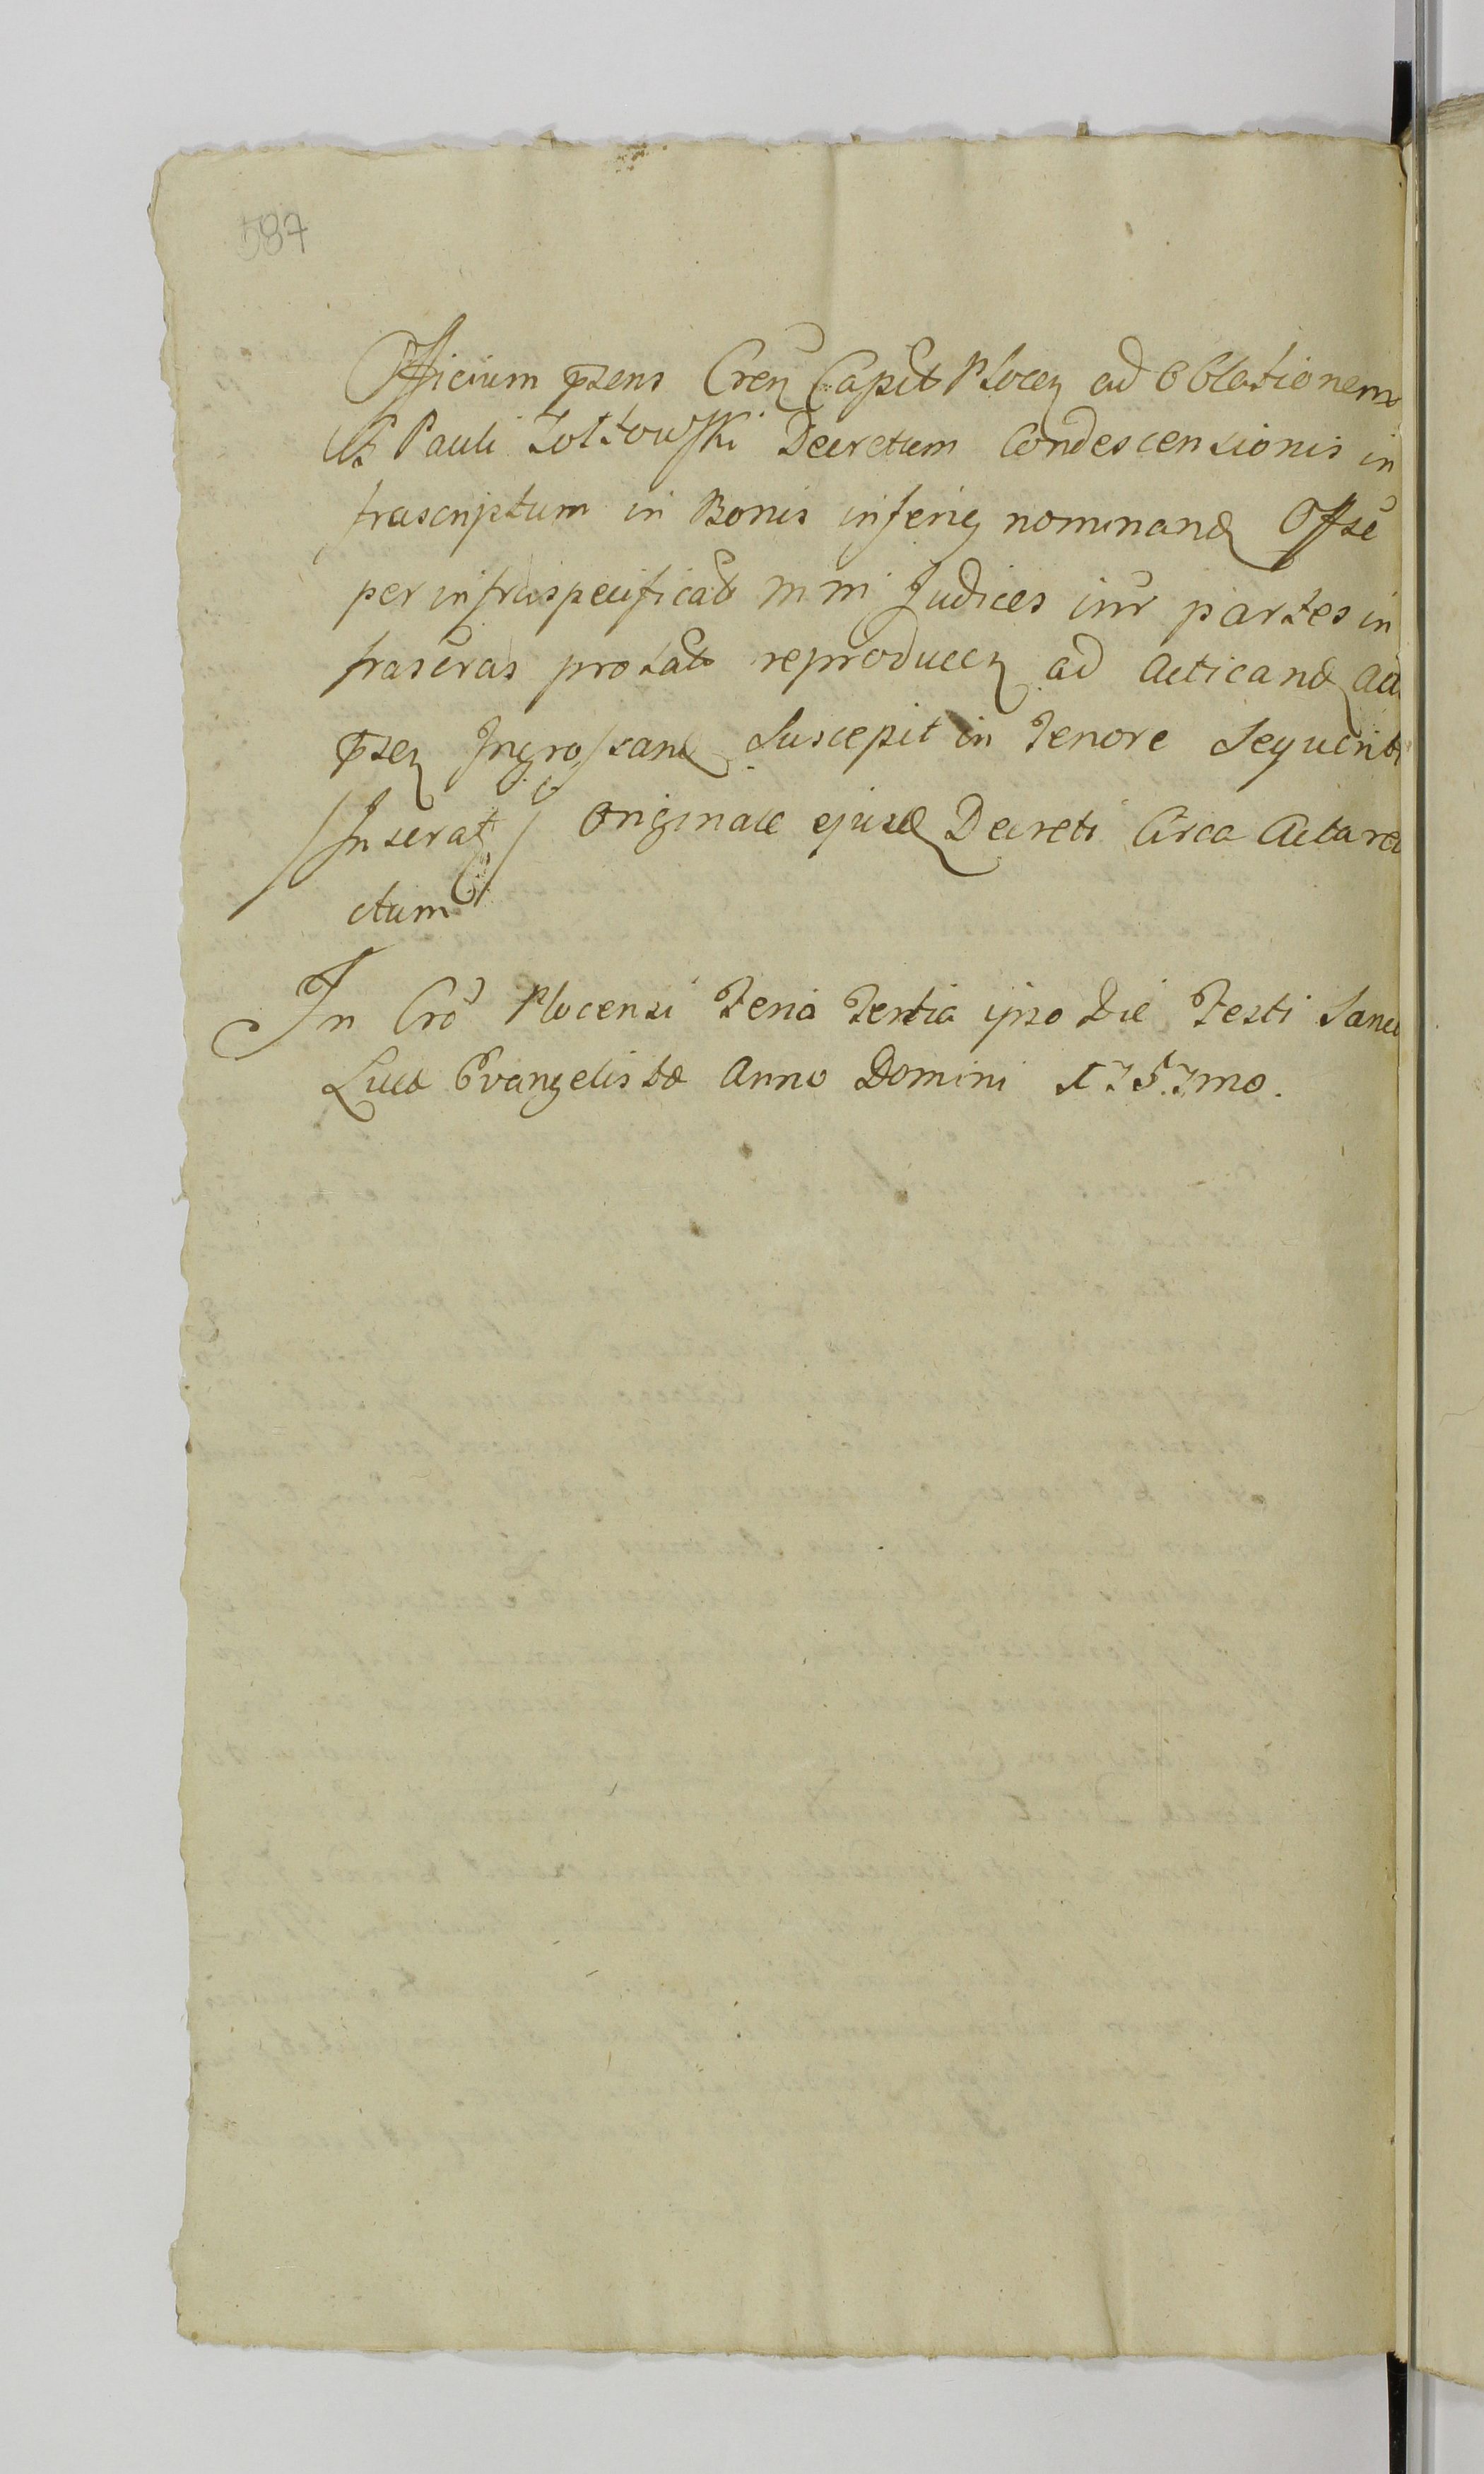 587
Officium psens Cren Capit Plocen ad Oblationem
Pauli Zołtowski Decretum Condescensionis in
frascriptum in Bonis inferig nominand Offse
per infraspecificat M M Judices intr partes in
frascras prolat reproducen ad Acticand Act
psen Ingrossand Suscepit in Tenore Sequenti
/Inserat/ Originale ejusd Decreti Circa Acta rel
ctum
In Cro Plocensi Feria Tertia ipso Die Festi Sanct
Lucæ Evangelistæ Anno Domini 1757mo.